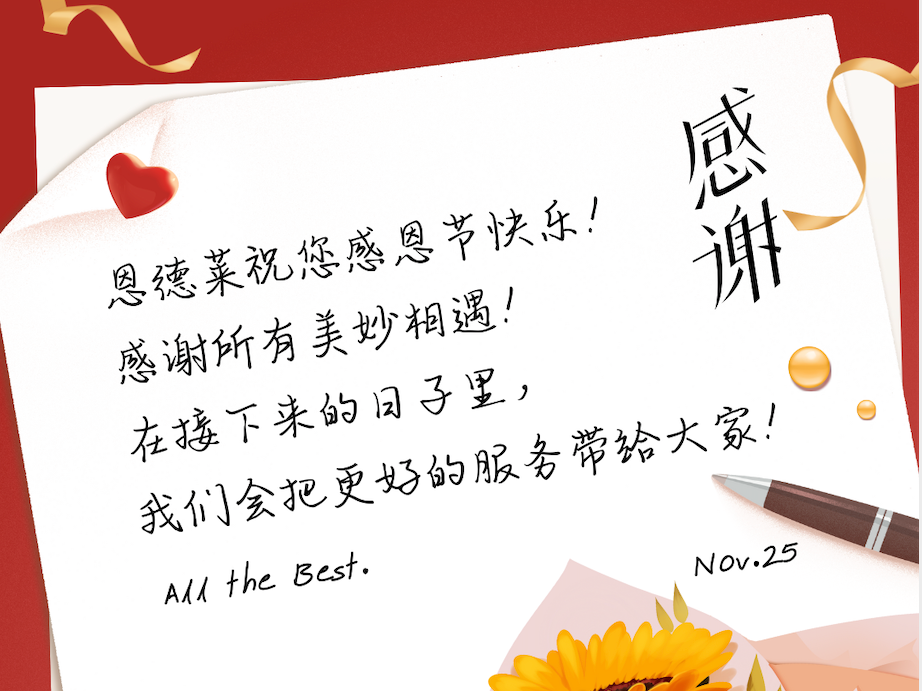 感谢
恩德菜祝您感恩节快乐！
感谢所有美妙相遇！
在接下来的日子里，
我们会把更好的服务带给大家！
All the Best.
Nov.25